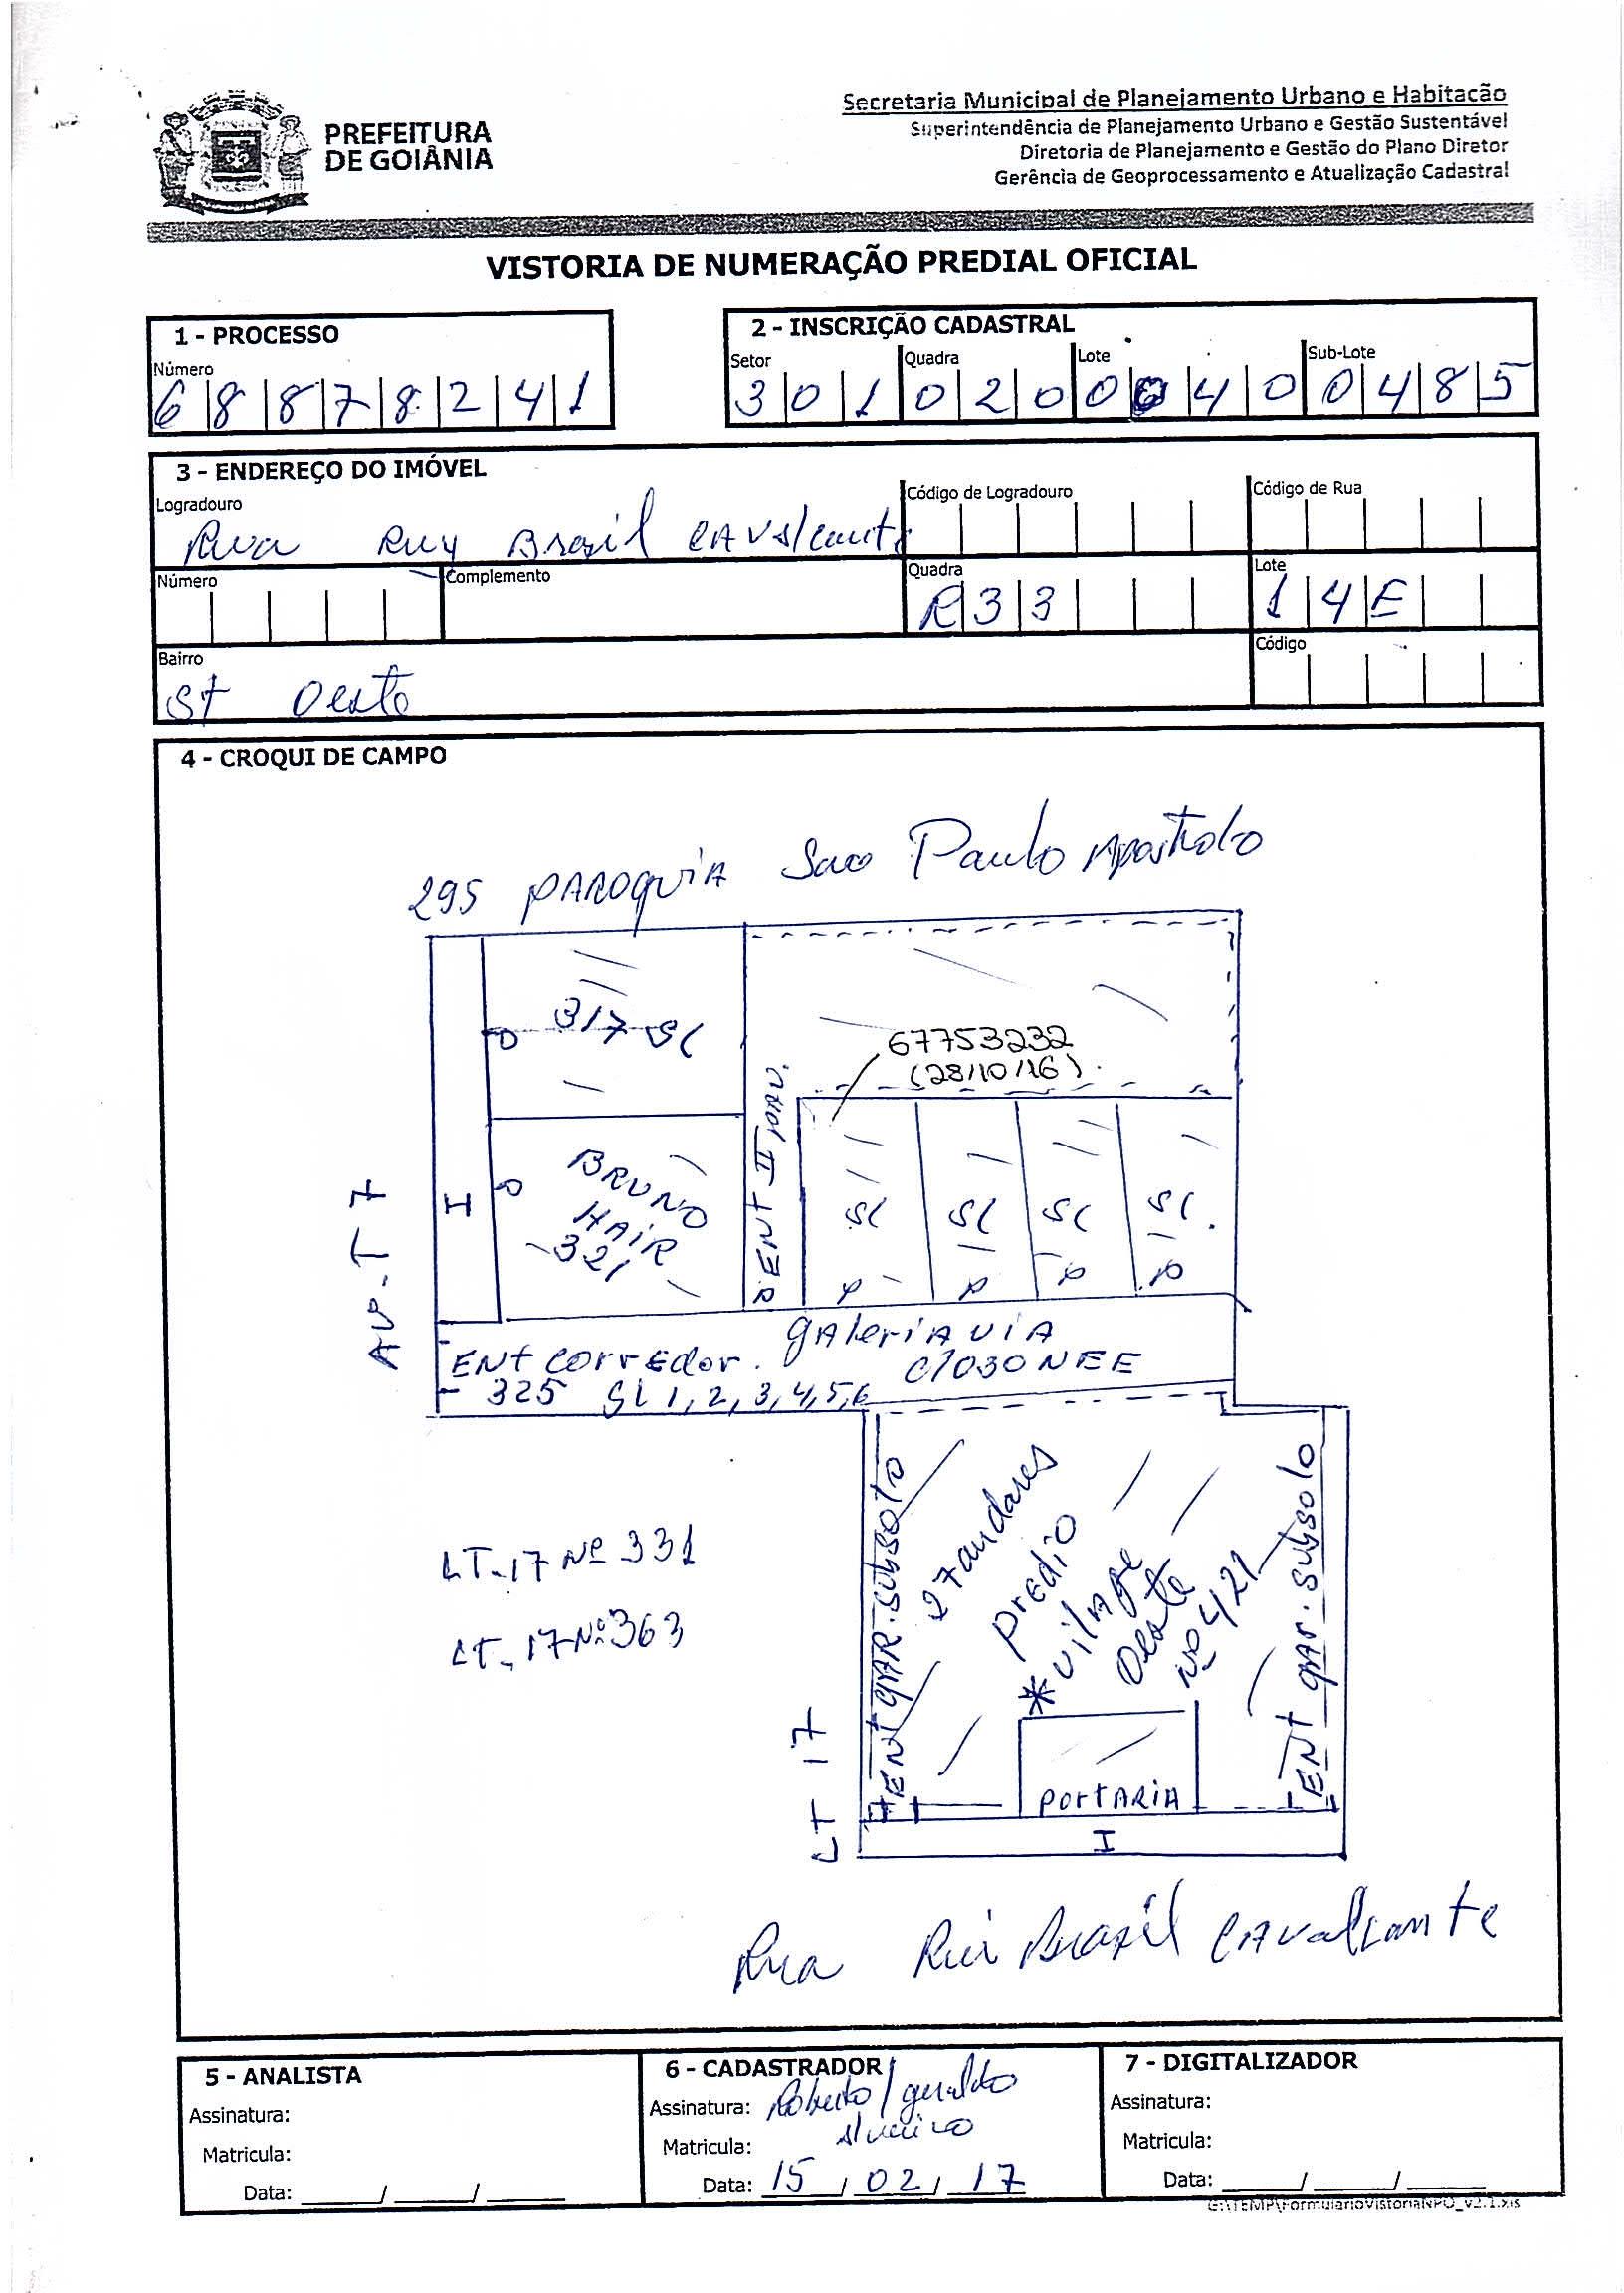 PREFEITURA
DE GOIÂNIA
Secretaria Municipal de Planejamento Urbano e Habitação
Superintendência de Planejamento Urbano e Gestão Sustentável
Diretoria de Planejamento e Gestão do Plano Diretor
Gerência de Geoprocessamento e Atualização Cadastral
VISTORIA DE NUMERAÇÃO PREDIAL OFICIAL
1 - PROCESSO
Número
6 8 8 7 8 2 4 1
2 - INSCRIÇÃO CADASTRAL
Setor Quadra Lote Sub-Lote
3 0 1 0 2 0 0 0 4 0 0 4 8 5
3 - ENDEREÇO DO IMÓVEL
Logradouro Código de Logradouro Código de Rua
Rua Ruy Brasil CAValcanti
Número Complemento Quadra Lote
R 3 3 1 4 E
Bairro Código
St Oeste
4 - CROQUI DE CAMPO
295 PAROQUIA Sao Paulo Apostolo
317 SL
67753232
(28/10/16).
ENt II PAV.
BRUNO
HAIR
321
I
SL SL SL SL.
AV. T 7
ENt CORREdOR. gAleriA ViA
C/030 NEE
325 SL 1, 2, 3, 4, 5, 6
LT. 17 Nº 331
LT. 17 Nº 363
LT 17
ENt GAR. subsolo
27 andares
predio
* VilAGE
Oeste
Nº 421
ENt gAR. subsolo
PORTARIA
I
Rua Rui Brasil CAValcante
5 - ANALISTA
Assinatura:
Matricula:
Data: ____/____/____
6 - CADASTRADOR
Assinatura: Roberto / geraldo
Matricula:
Data: 15 / 02 / 17
7 - DIGITALIZADOR
Assinatura:
Matricula:
Data: ____/____/____
G:\TEMP\FormularioVistoriaNPO_v2.1.xls